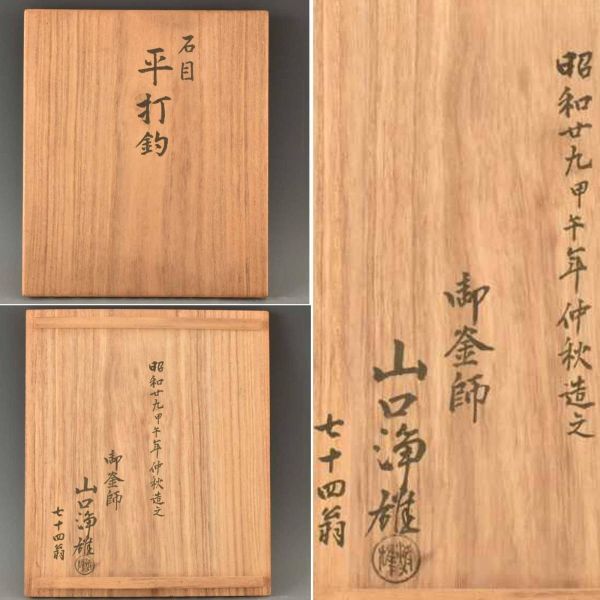 石目
平打釣
昭和廿九甲午年仲秋造之
御釜師
山口浄雄
七十四翁
昭和廿九甲午年仲秋造之
御釜師
山口浄雄
七十四翁